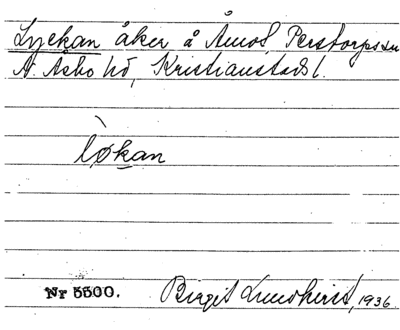 Lyckan åker å Åmot, Perstorps sn
N. Åsbo hd, Kristianstads l.
lø̀kan
Nr 5500. Birgit Lundkvist, 1936.